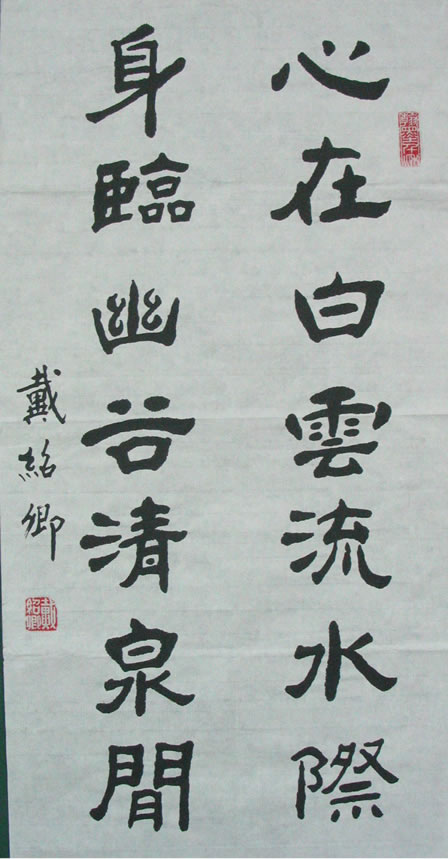 心在白雲流水際
身臨幽谷清泉間
戴紹卿
戴紹卿